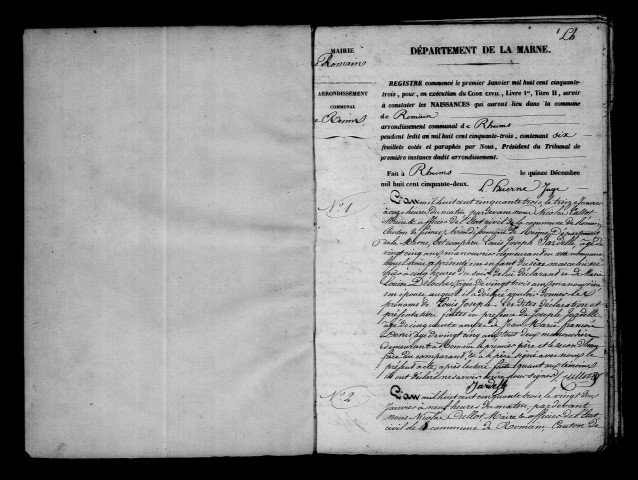 MAIRIE
Romain
ARRONDISSEMENT
COMMUNAL
de Reims
DÉPARTEMENT DE LA MARNE.
REGISTRE commencé le premier Janvier mil huit cent cinquante-
trois, pour, en exécution du CODE CIVIL, Livre 1er, Titre II, servir
à constater les NAISSANCES qui auront lieu dans la commune
de Romain
arrondissement communal de Rheims
pendant ledit an mil huit cent cinquante-trois, contenant six
feuillets cotés et paraphés par Nous, Président du Tribunal de
première instance dudit arrondissement.
Fait à Rheims le quinze Décembre
mil huit cent cinquante-deux.
Juge
No 1
L'an mil huit cent cinquante trois, le treize janvier
à heures du matin pardevant nous Nicolas
Maire et officier de l'état civil de la commune de
Canton de Fismes, Département
de la Marne, est comparu Louis Joseph Jardelle, âgé de
vingt cinq ans, manouvrier demeurant en
a présenté un enfant du sexe masculin
à cinq heures du soir, de lui déclarant et de Marie
Louise âgée de vingt trois ans
son épouse, auquel il a déclaré vouloir donner les
prénoms de Louis Joseph. Les dites déclaration et
présentation faites en présence de Joseph Jardelle
âgé de cinquante ans et de Jean Marie François
Denis âgé de vingt cinq ans tous deux manouvriers
demeurant à Romain le premier père et le second beau
frère du comparant, et le père signé avec nous le
présent acte, après lecture faite quant aux témoins
ils ont déclaré ne savoir signer
Jardelle
No 2
L'an mil huit cent cinquante trois le vingt
janvier à neuf heures du matin, pardevant
nous Nicolas Maire et officier de l'état
civil de la commune de Romain, Canton de